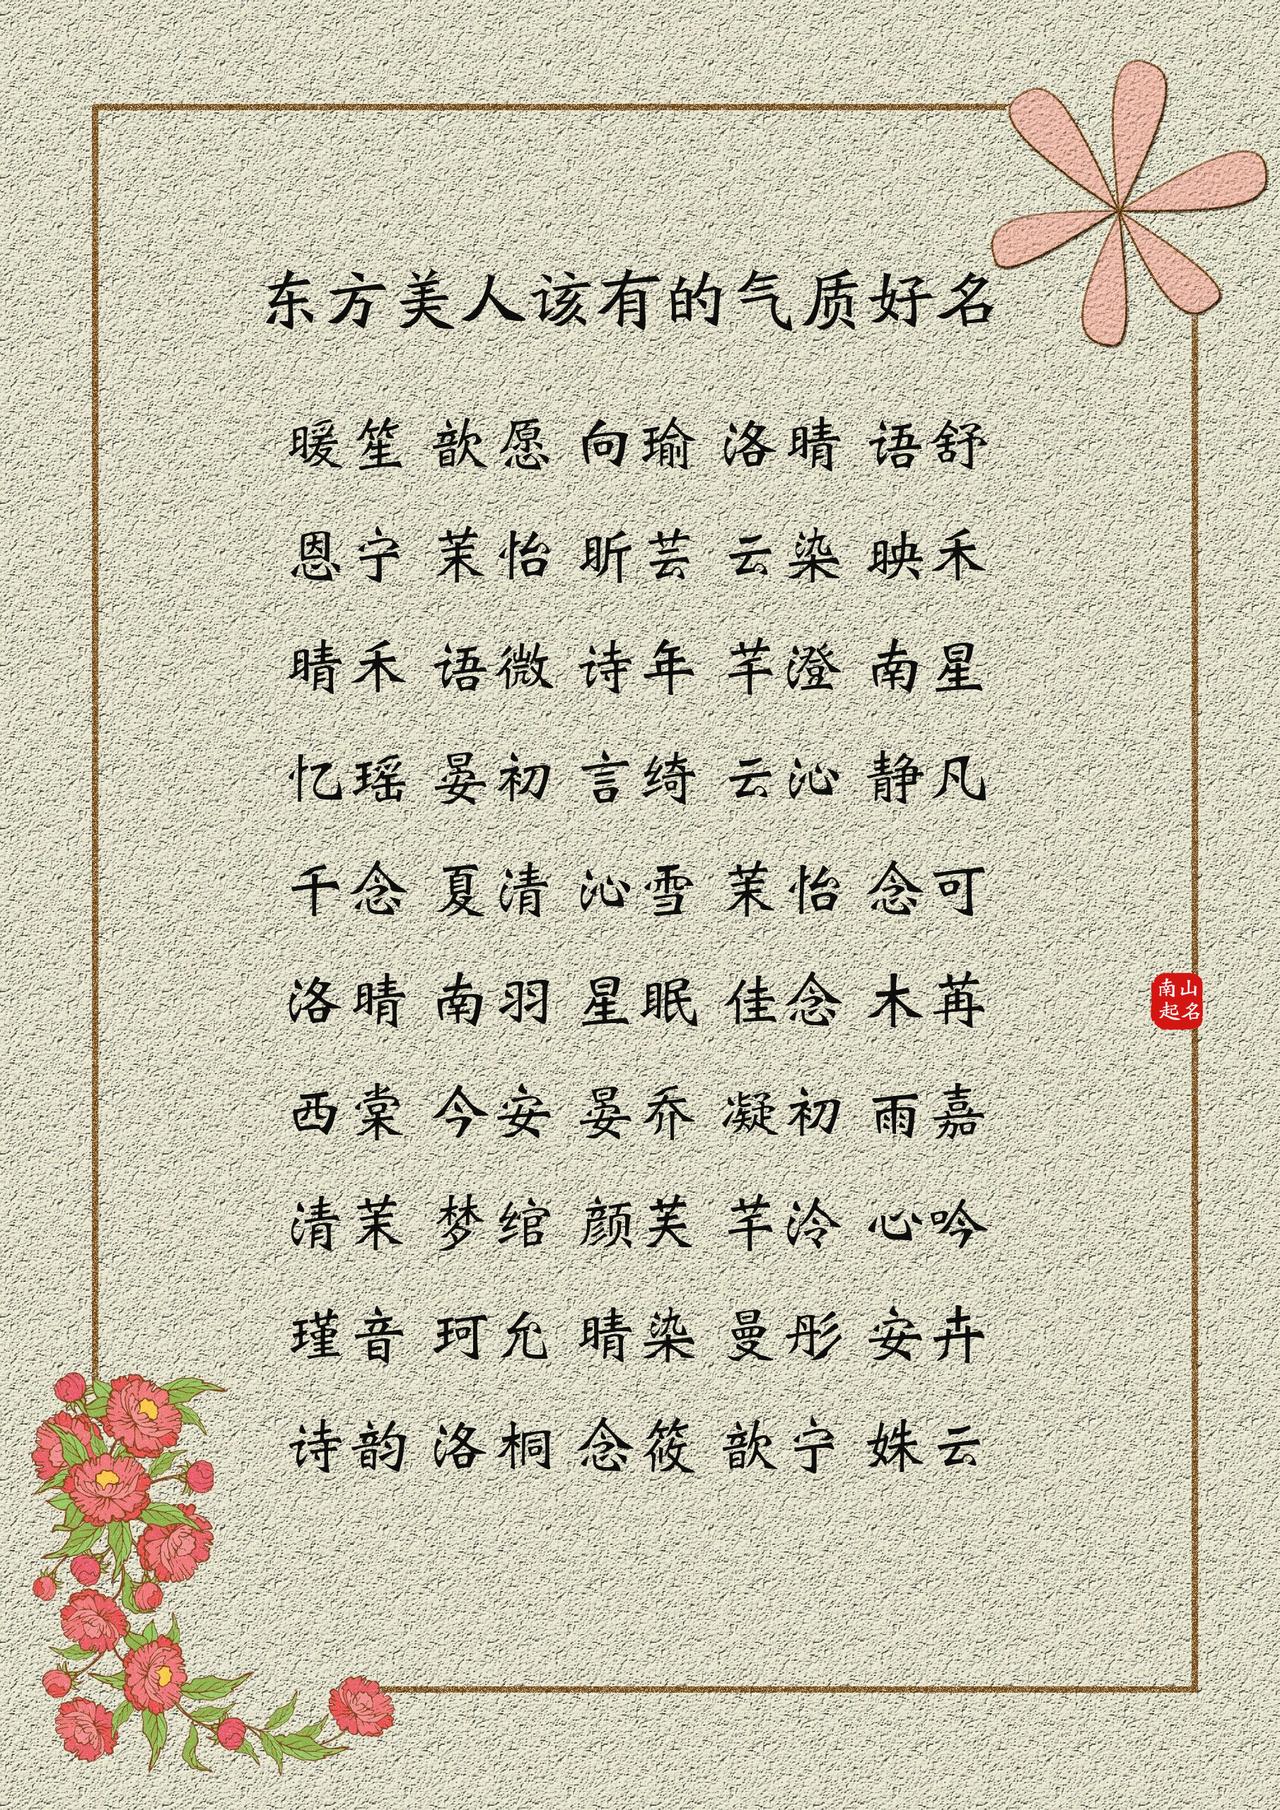 东方美人该有的气质好名
暖笙 歆愿 向瑜 洛晴 语舒
恩宁 茉怡 昕芸 云染 映禾
晴禾 语微 诗年 芊澄 南星
忆瑶 晏初 言绮 云沁 静凡
千念 夏清 沁雪 茉怡 念可
洛晴 南羽 星眠 佳念 木苒
南山
起名
西棠 今安 晏乔 凝初 雨嘉
清茉 梦绾 颜芙 芊泠 心吟
瑾音 珂允 晴染 曼彤 安卉
诗韵 洛桐 念筱 歆宁 姝云